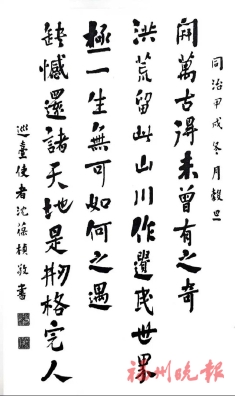 同治甲戌冬月穀旦
開萬古得未曾有之奇
洪荒留此山川作遺民世界
極一生無可如何之遇
缺憾還諸天地是剏格完人
巡臺使者沈葆楨敬書
福州晚報